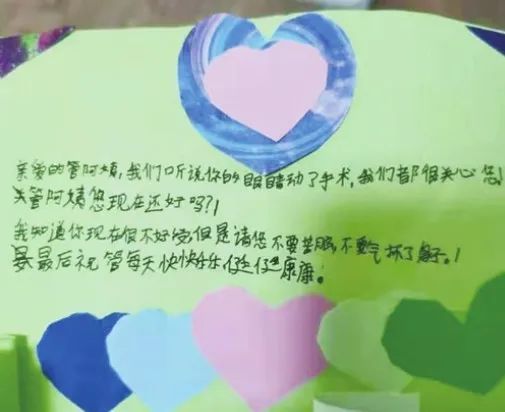 亲爱的管阿姨,我们听说你的眼睛动了手术,我们都很关心您!
关管阿姨您现在还好吗?!
我知道你现在很不好受,但是请您不要,不要气坏了身子.!
最后祝管每天快快乐乐健健康康!